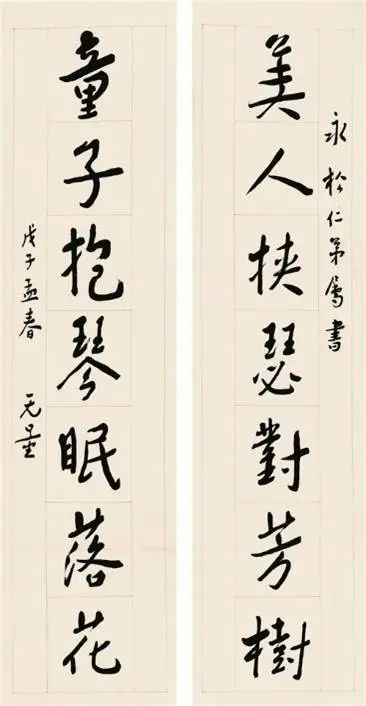 永松仁弟属書
美人挾瑟對芳樹
童子抱琴眠落花
戊子孟春 无量